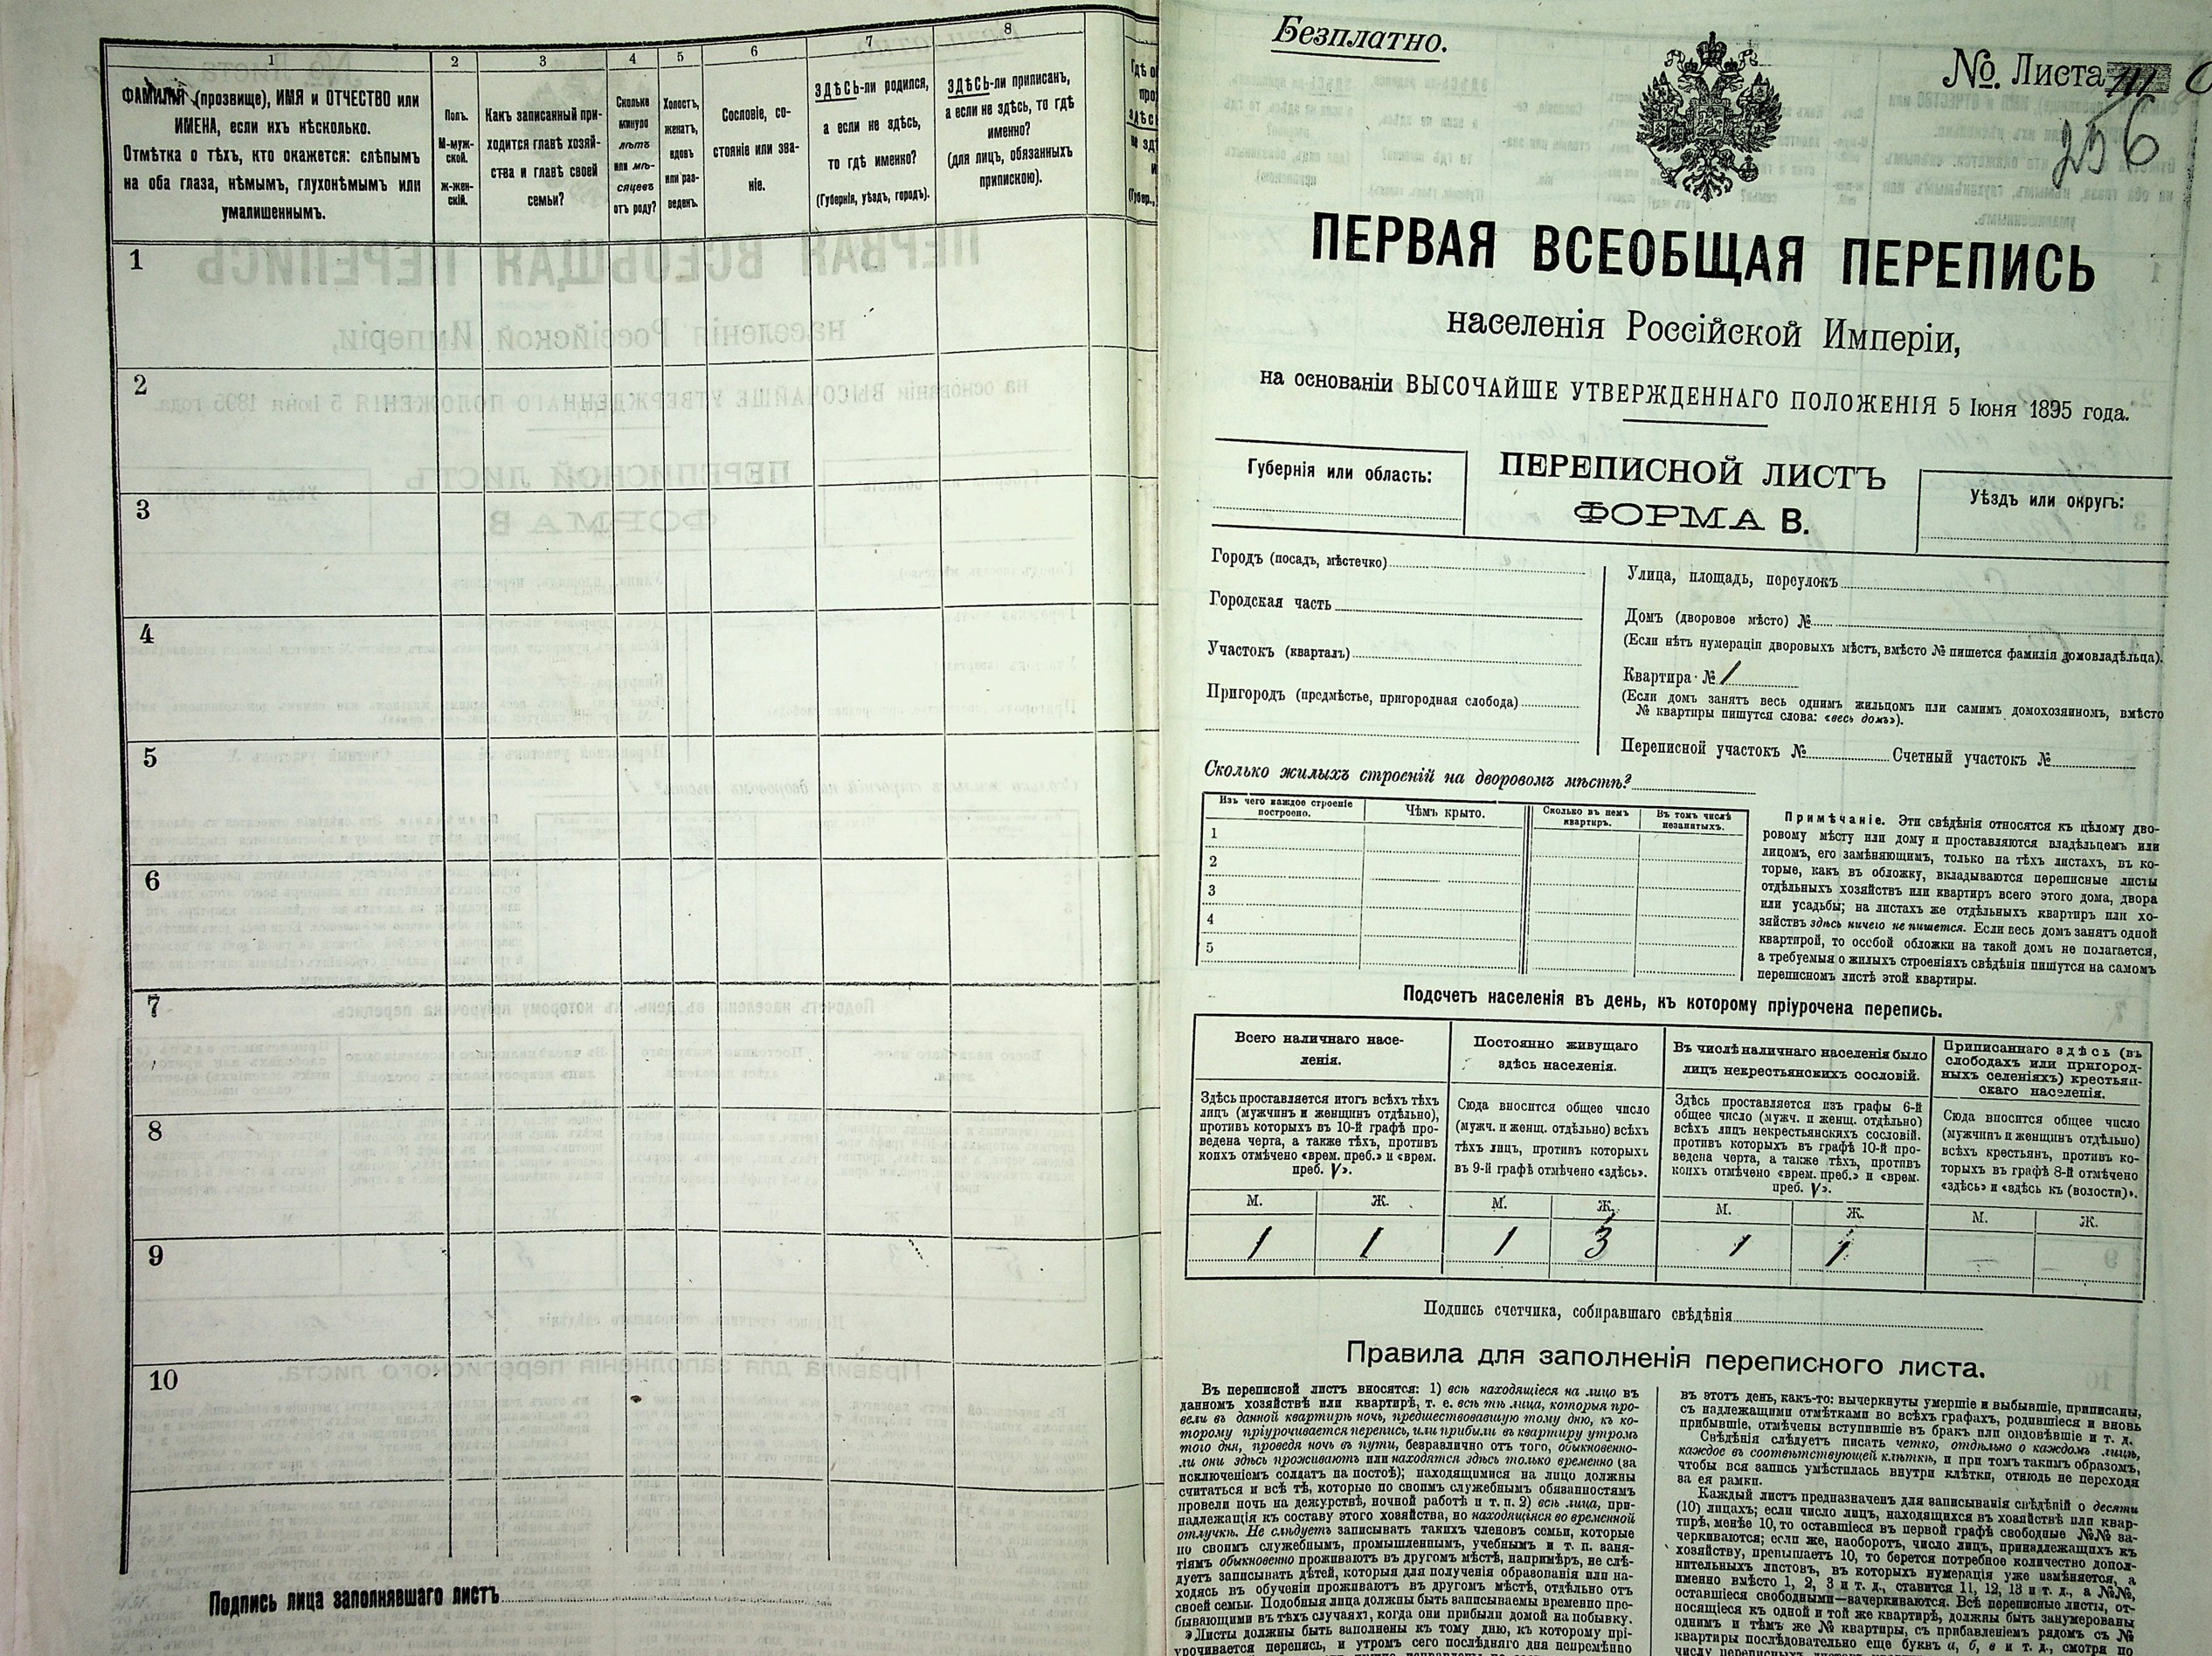 1
2
3
4
5
6
7
8
ФАМИЛІЯ (прозвище), ИМЯ и ОТЧЕСТВО или
ИМЕНА, если ихъ нѣсколько.
Отмѣтка о тѣхъ, кто окажется: слѣпымъ
на оба глаза, нѣмымъ, глухонѣмымъ или
умалишеннымъ.
Полъ.
М-муж-
ской.
ж-жен-
скій.
Какъ записанный при-
ходится главѣ хозяй-
ства и главѣ своей
семьи?
Сколько
минуло
лѣтъ
или мѣ-
сяцевъ
отъ роду?
Холостъ,
женатъ,
вдовъ
или раз-
веденъ.
Сословіе, со-
стояніе или зва-
ніе.
ЗДѢСЬ-ли родился,
а если не здѣсь,
то гдѣ именно?
(Губернія, уѣздъ, городъ).
ЗДѢСЬ-ли приписанъ,
а если не здѣсь, то гдѣ
именно?
(для лицъ, обязанныхъ
припискою).
1
2
3
4
5
6
7
8
9
10
Подпись лица заполнявшаго листъ
Безплатно.
№. Листа
256
ПЕРВАЯ ВСЕОБЩАЯ ПЕРЕПИСЬ
населенія Россійской Имперіи,
на основаніи ВЫСОЧАЙШЕ УТВЕРЖДЕННАГО ПОЛОЖЕНІЯ 5 Іюня 1895 года.
Губернія или область:
ПЕРЕПИСНОЙ ЛИСТЪ
ФОРМА В.
Уѣздъ или округъ:
Городъ (посадъ, мѣстечко)
Городская часть
Участокъ (кварталъ)
Пригородъ (предмѣстье, пригородная слобода)
Улица, площадь, переулокъ
Домъ (дворовое мѣсто) №
(Если нѣтъ нумераціи дворовыхъ мѣстъ, вмѣсто № пишется фамилія домовладѣльца).
Квартира № 1
(Если домъ занятъ весь однимъ жильцомъ или самимъ домохозяиномъ, вмѣсто
№ квартиры пишутся слова: «весь домъ»).
Переписной участокъ № Счетный участокъ №
Сколько жилыхъ строеній на дворовомъ мѣстѣ?
Изъ чего каждое строеніе
построено.
Чѣмъ крыто.
Сколько въ немъ
квартиръ.
Въ томъ числѣ
незанятыхъ.
1
2
3
4
5
Примѣчаніе. Эти свѣдѣнія относятся къ цѣлому дво-
ровому мѣсту или дому и проставляются владѣльцемъ или
лицомъ, его замѣняющимъ, только на тѣхъ листахъ, въ ко-
торые, какъ въ обложку, вкладываются переписные листы
отдѣльныхъ хозяйствъ или квартиръ всего этого дома, двора
или усадьбы; на листахъ же отдѣльныхъ квартиръ или хо-
зяйствъ здѣсь ничего не пишется. Если весь домъ занятъ одной
квартирой, то особой обложки на такой домъ не полагается,
а требуемыя о жилыхъ строеніяхъ свѣдѣнія пишутся на самомъ
переписномъ листѣ этой квартиры.
Подсчетъ населенія въ день, къ которому пріурочена перепись.
Всего наличнаго насе-
ленія.
Здѣсь проставляется итогъ всѣхъ тѣхъ
лицъ (мужчинъ и женщинъ отдѣльно),
противъ которыхъ въ 10-й графѣ про-
ведена черта, а также тѣхъ, противъ
коихъ отмѣчено «врем. преб.» и «врем.
преб. V».
Постоянно живущаго
здѣсь населенія.
Сюда вносится общее число
(мужч. и женщ. отдѣльно) всѣхъ
тѣхъ лицъ, противъ которыхъ
въ 9-й графѣ отмѣчено «здѣсь».
Въ числѣ наличнаго населенія было
лицъ некрестьянскихъ сословій.
Здѣсь проставляется изъ графы 6-й
общее число (мужч. и женщ. отдѣльно)
всѣхъ лицъ некрестьянскихъ сословій.
противъ которыхъ въ графѣ 10-й про-
ведена черта, а также тѣхъ, противъ
коихъ отмѣчено «врем. преб.» и «врем.
преб. V».
Приписаннаго здѣсь (въ
слободахъ или пригород-
ныхъ селеніяхъ) крестьян-
скаго населенія.
Сюда вносится общее число
(мужчинъ и женщинъ отдѣльно)
всѣхъ крестьянъ, противъ ко-
торыхъ въ графѣ 8-й отмѣчено
«здѣсь» и «здѣсь къ (волости)».
М. Ж. М. Ж. М. Ж. М. Ж.
1 1 1 3 1 1 — —
Подпись счетчика, собиравшаго свѣдѣнія
Правила для заполненія переписного листа.
Въ переписной листъ вносятся: 1) всѣ находящіеся на лицо въ
данномъ хозяйствѣ или квартирѣ, т. е. всѣ тѣ лица, которыя про-
вели въ данной квартирѣ ночь, предшествовавшую тому дню, къ ко-
торому пріурочивается перепись, или прибыли въ квартиру утромъ
того дня, проведя ночь въ пути, безразлично отъ того, обыкновенно-
ли они здѣсь проживаютъ или находятся здѣсь только временно (за
исключеніемъ солдатъ на постоѣ); находящимися на лицо должны
считаться и всѣ тѣ, которые по своимъ служебнымъ обязанностямъ
провели ночь на дежурствѣ, ночной работѣ и т. п. 2) всѣ лица, при-
надлежащія къ составу этого хозяйства, но находящіяся во временной
отлучкѣ. Не слѣдуетъ записывать такихъ членовъ семьи, которые
по своимъ служебнымъ, промышленнымъ, учебнымъ и т. п. заня-
тіямъ обыкновенно проживаютъ въ другомъ мѣстѣ, напримѣръ, не слѣ-
дуетъ записывать дѣтей, которыя для полученія образованія или на-
ходясь въ обученіи проживаютъ въ другомъ мѣстѣ, отдѣльно отъ
своей семьи. Подобныя лица должны быть записываемы временно про-
бывающими въ тѣхъ случаяхъ, когда они прибыли домой на побывку.
Листы должны быть заполнены къ тому дню, къ которому прі-
урочивается перепись, и утромъ сего послѣдняго дня непремѣнно
въ этотъ день, какъ-то: вычеркнуты умершіе и выбывшіе, приписаны,
съ надлежащими отмѣтками во всѣхъ графахъ, родившіеся и вновь
прибывшіе, отмѣчены вступившіе въ бракъ или овдовѣвшіе и т. д.
Свѣдѣнія слѣдуетъ писать четко, отдѣльно о каждомъ лицѣ,
каждое въ соотвѣтствующей клѣткѣ, и при томъ такимъ образомъ,
чтобы вся запись умѣстилась внутри клѣтки, отнюдь не переходя
за ея рамки.
Каждый листъ предназначенъ для записыванія свѣдѣній о десяти
(10) лицахъ; если число лицъ, находящихся въ хозяйствѣ или квар-
тирѣ, менѣе 10, то оставшіеся въ первой графѣ свободные №№ за-
черкиваются; если же, наоборотъ, число лицъ, принадлежащихъ къ
хозяйству, превышаетъ 10, то берется потребное количество допол-
нительныхъ листовъ, въ которыхъ нумерація уже измѣняется, а
именно вмѣсто 1, 2, 3 и т. д., ставится 11, 12, 13 и т. д., а №№,
оставшіеся свободными—вачеркиваются. Всѣ переписные листы, от-
носящіеся къ одной и той же квартирѣ, должны быть занумерованы
однимъ и тѣмъ же № квартиры, съ прибавленіемъ рядомъ съ №
квартиры послѣдовательно еще буквъ а, б, в и т. д., смотря по